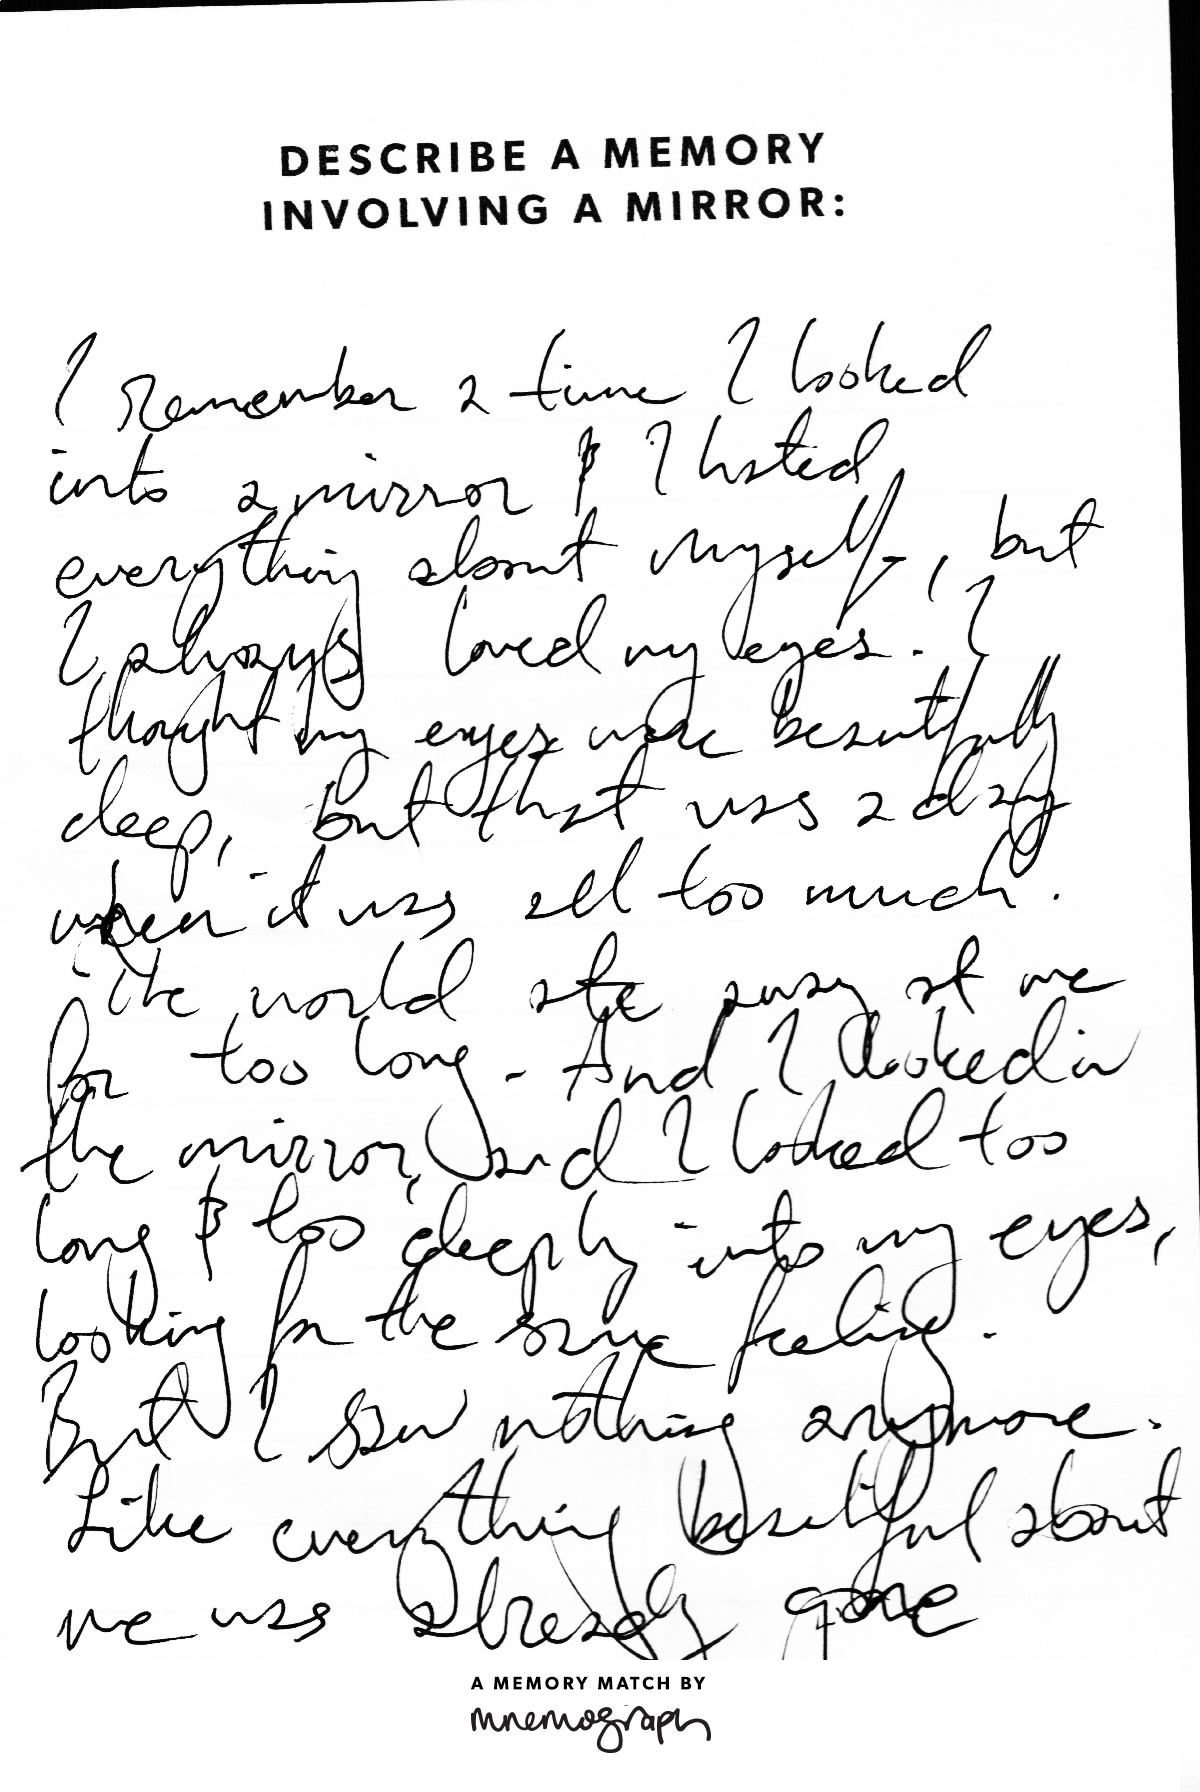 DESCRIBE A MEMORY
INVOLVING A MIRROR:
I remember a time I looked
into a mirror & I hated
everything about myself, but
I always loved my eyes. I
thought my eyes were beautifully
deep, but that was a day
when it was all too much.
The world ate away at me
for too long. And I looked in
the mirror, and I looked too
long & too deeply into my eyes,
looking for the same feeling.
But I saw nothing anymore.
Like everything beautiful about
me was already gone
A MEMORY MATCH BY
mnemograph